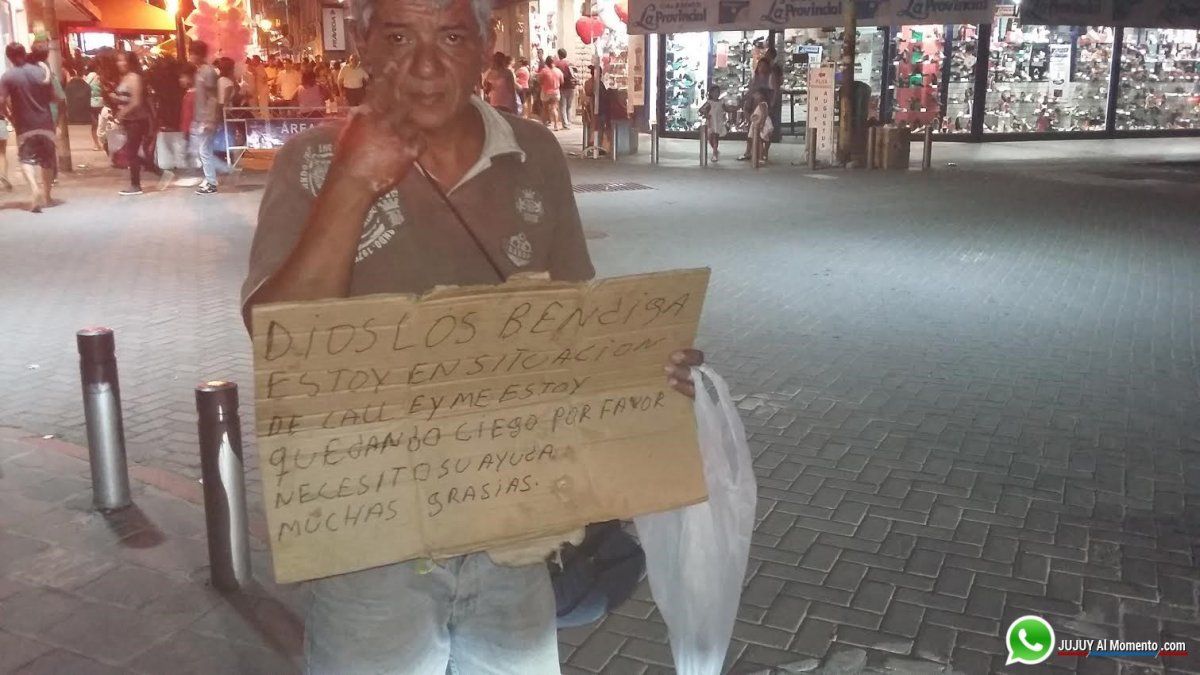 La Provincial
La Provincial
La Provincial
AREA
DIOS LOS BENDIGA
ESTOY EN SITUACION
DE CALL EY ME ESTOY
QUEDANDO CIEGO POR FAVOR
NECESITO SU AYUDA
MUCHAS GRASIAS.
JUJUY Al Momento.com